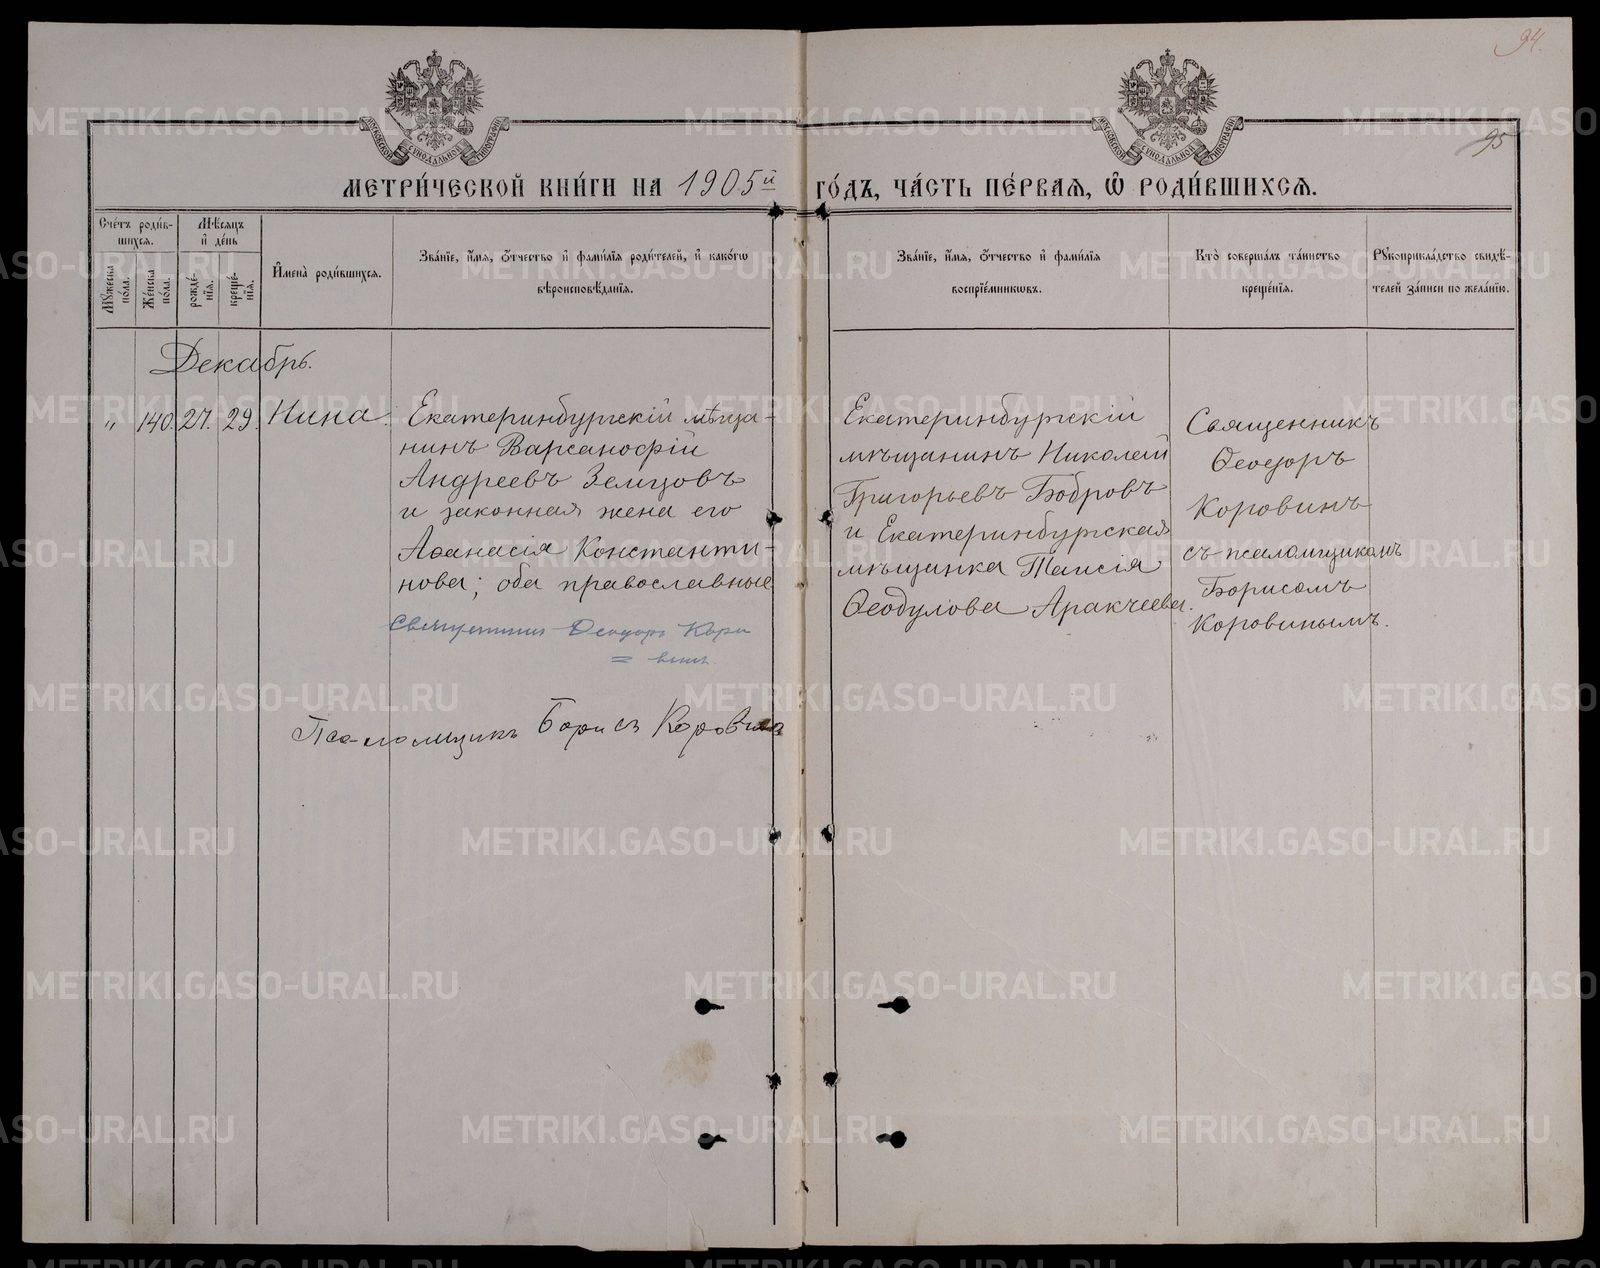 94.
95
МОСКОВСКОЙ СУНОДАЛЬНОЙ ТИПОГРАФІИ
МОСКОВСКОЙ СУНОДАЛЬНОЙ ТИПОГРАФІИ
МЕТРИ́ЧЕСКОЙ КНИ́ГИ НА 1905й ГО́ДЪ, ЧА́СТЬ ПЕ́РВАЯ, Ѿ РОДИ́ВШИХСЯ.
Сче́тъ роди́в-
шихся.
Му́жеска по́ла.
Же́нска по́ла.
Мѣ́сяцъ
и҆ де́нь
рожде́-
нїя.
креще́-
нїя.
И҆мена̀ роди́вшихся.
Зва́нїе, и҆́мя, ѻ҆́тчество и҆ фами́лїя роди́телей, и҆ како́гѡ
вѣроисповѣ́данїя.
Зва́нїе, и҆́мя, ѻ҆́тчество и҆ фами́лїя
воспрїе́мниковъ.
Кто̀ соверша́лъ та́инство
креще́нїя.
Рꙋкоприкла́дство свидѣ́-
телей за́писи по жела́нїю.
Декабрь.
" 140. 27. 29. Нина.
Екатеринбургскій мѣща-
нинъ Варсанофій
Андреевъ Земцовъ
и законная жена его
Аѳанасія Константи-
нова; оба православные
Екатеринбургскій
мѣщанинъ Николай
Григорьевъ Бобровъ
и Екатеринбургская
мѣщанка Таисія
Ѳеодулова Аракчеева.
Священникъ
Ѳеодоръ
Коровинъ
съ псаломщикомъ
Борисомъ
Коровинымъ.
Священникъ Ѳеодоръ Коро
= винъ.
Псаломщикъ Борисъ Коровинъ
METRIKI.GASO-URAL.RU